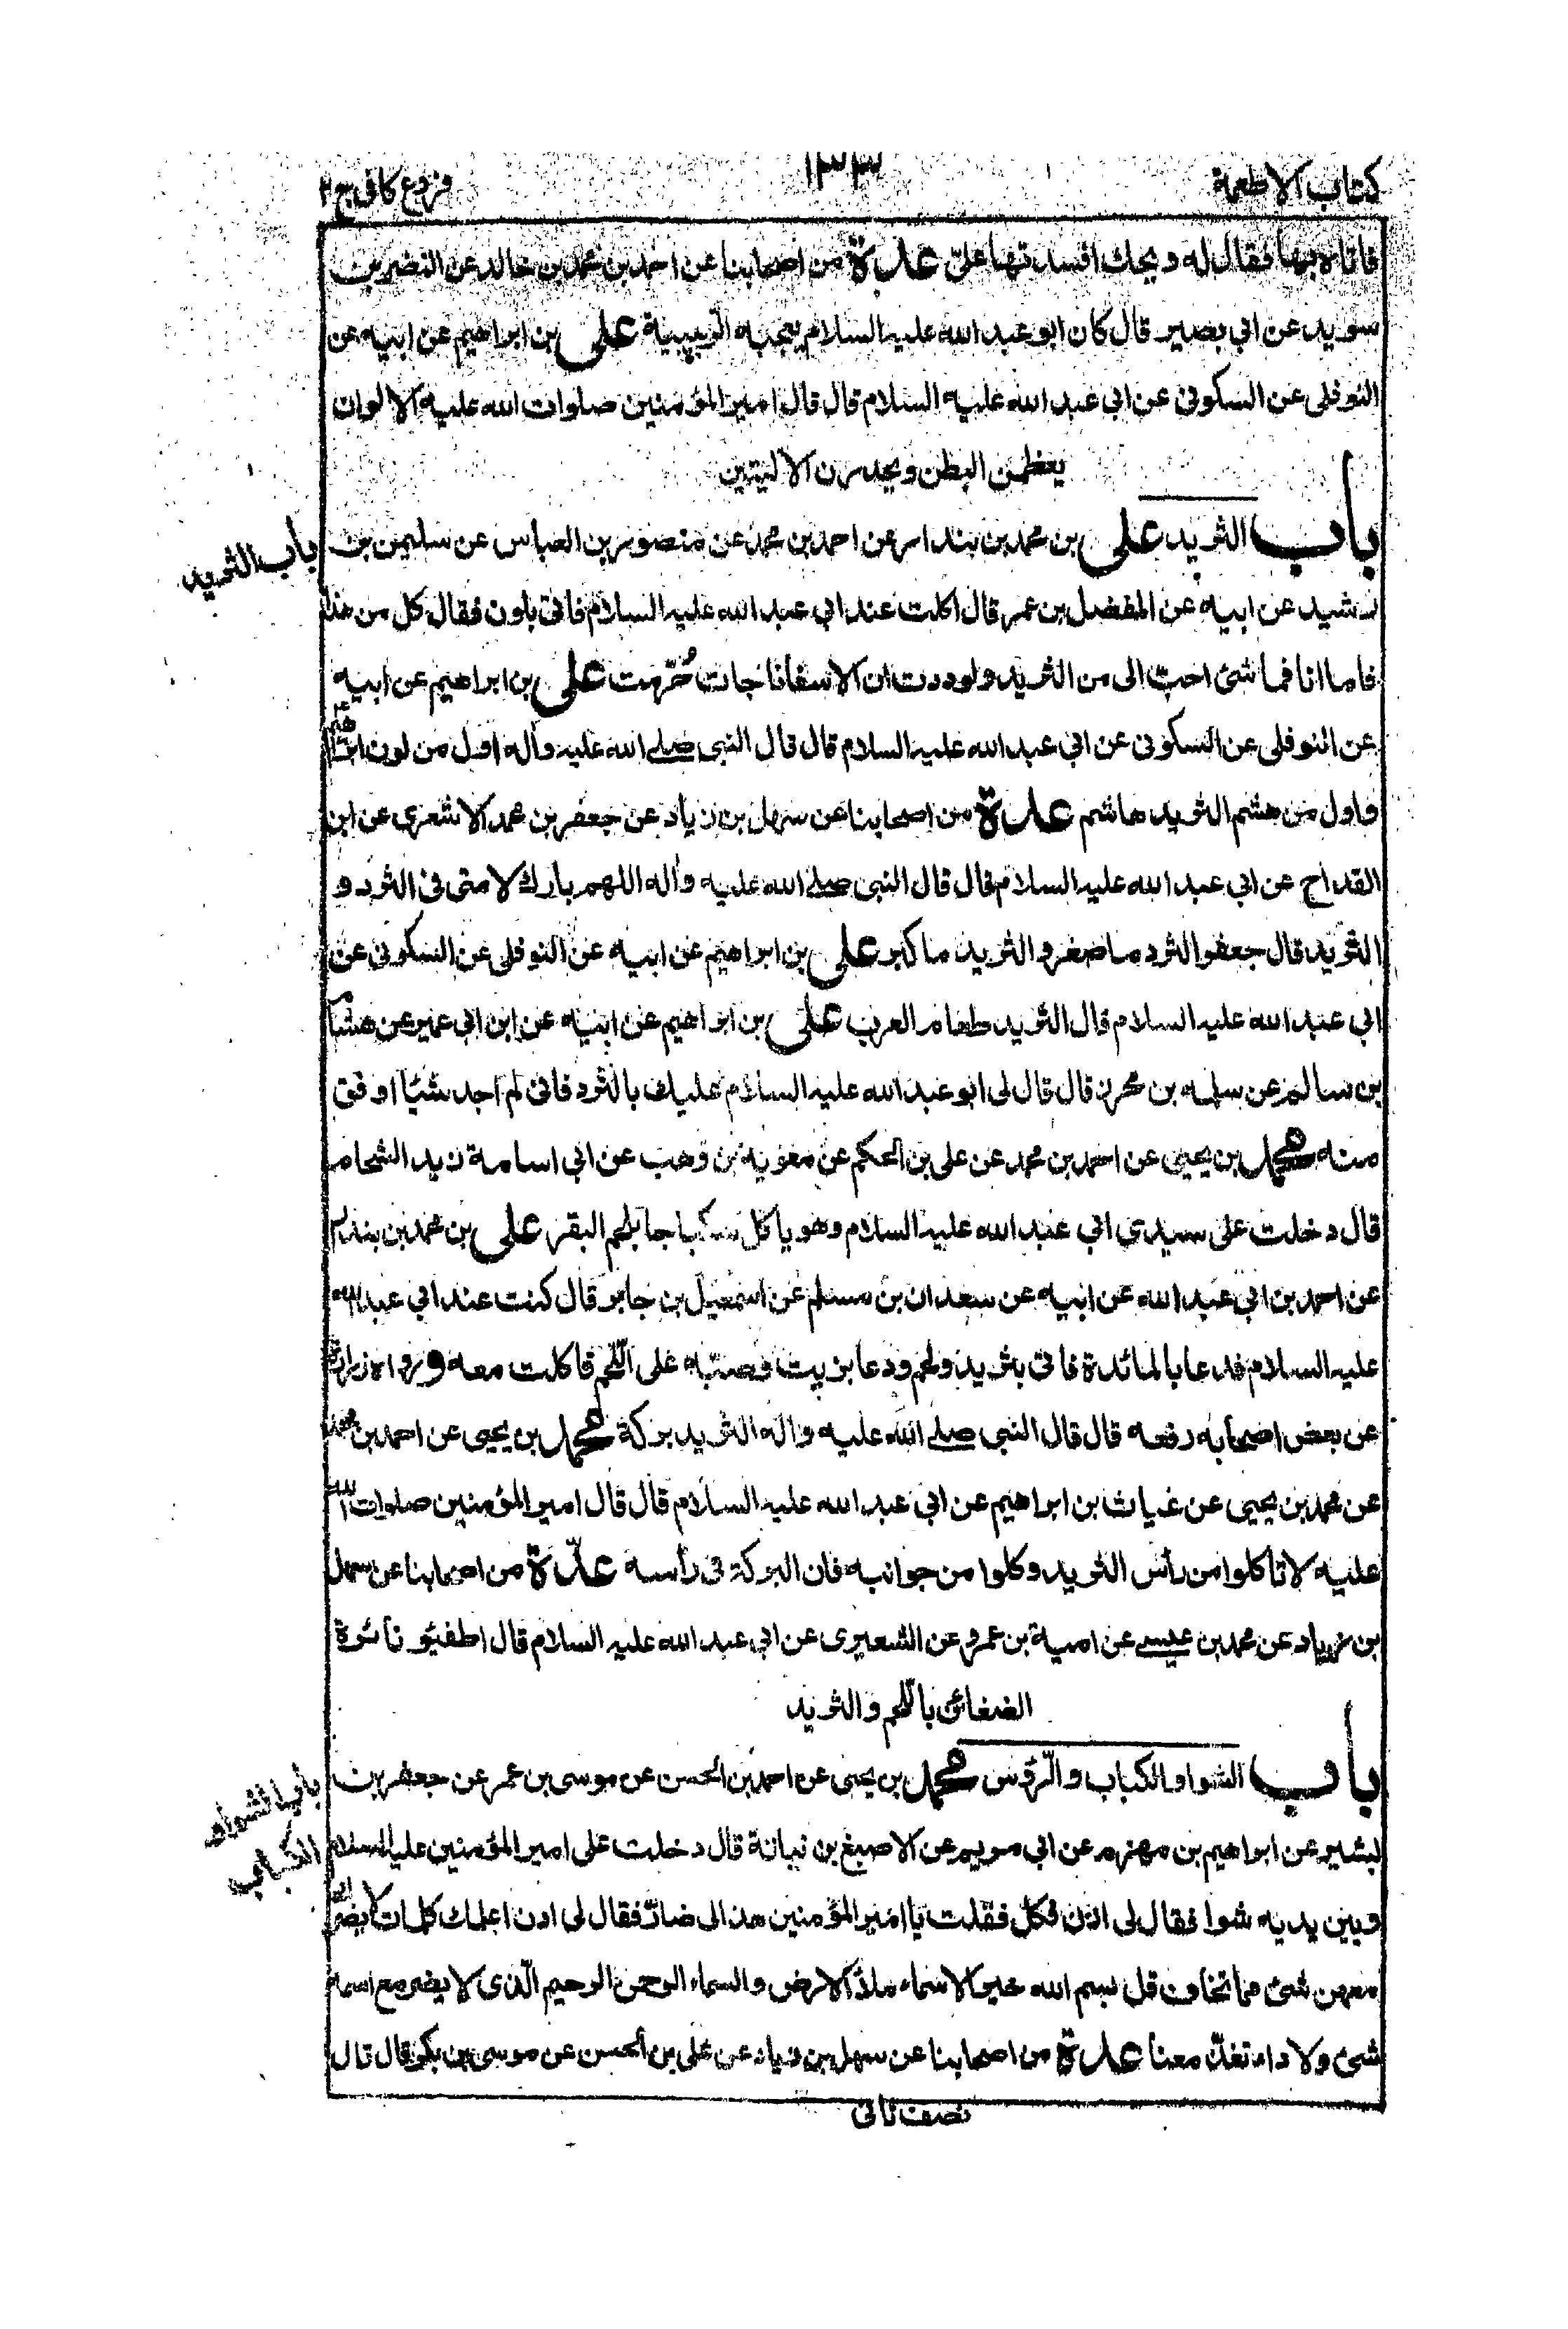 كتاب الاطعمة
١٣٣
فروع كافى ج ٢
فاتاه بها فقال له ويحك افسدتها علىّ عدة من اصحابنا عن احمد بن محمد بن خالد عن النضر بن
سويد عن ابي بصير قال كان ابو عبد الله عليه السلام يعجبه الزبيبية على بن ابراهيم عن ابيه عن
النوفلى عن السكونى عن ابي عبد الله عليه السلام قال قال امير المؤمنين صلوات الله عليه الالوان
يعظمن البطن ويخدرن الاليتين
باب الثريد على بن محمد بن بندار عن احمد بن محمد عن منصور بن العباس عن سليمن بن
باب الثريد
رشيد عن ابيه عن المفضل بن عمر قال اكلت عند ابي عبد الله عليه السلام فاتى بلون فقال كل من هذا
فاما انا فما شئ احبّ الى من الثريد ولوددت ان الاسفاناجات حُرّمت على بن ابراهيم عن ابيه
عن النوفلى عن السكونى عن ابي عبد الله عليه السلام قال قال النبى صلے الله عليه وآله اول من لون ابراهيم
واول من هشم الثريد هاشم عدة من اصحابنا عن سهل بن زياد عن جعفر بن محمد الاشعرى عن ابن
القداح عن ابي عبد الله عليه السلام قال قال النبى صلے الله عليه وآله اللهم بارك لامتى فى الثرد و
الثريد قال جعفر الثرد ما صغر والثريد ما كبر على بن ابراهيم عن ابيه عن النوفلى عن السكونى عن
ابي عبد الله عليه السلام قال الثريد طعام العرب على بن ابراهيم عن ابيه عن ابن ابي عمير عن هشام
بن سالم عن سلمه بن محرز قال قال لى ابو عبد الله عليه السلام عليك بالثرد فانى لم اجد شيئا اوفق
منه محمد بن يحيى عن احمد بن محمد عن على بن الحكم عن معوية بن وهب عن ابي اسامة زيد الشحام
قال دخلت على سيدى ابي عبد الله عليه السلام وهو ياكل سكباجا بلحم البقر على بن محمد بن بندار
عن احمد بن ابي عبد الله عن ابيه عن سعدان بن مسلم عن اسمعيل بن جابر قال كنت عند ابي عبد الله
عليه السلام فدعا بالمائدة فاتى بثريد ولحم ودعا بزيت وصبّه على اللّحم فاكلت معه ورواه زرارة
عن بعض اصحابه رفعه قال قال النبى صلے الله عليه وآله الثريد بركة محمد بن يحيى عن احمد بن محمد
عن محمد بن يحيى عن غياث بن ابراهيم عن ابي عبد الله عليه السلام قال قال امير المؤمنين صلوات الله
عليه لا تاكلوا من رأس الثريد وكلوا من جوانبه فان البركة فى رأسه عدّة من اصحابنا عن سهل
بن زياد عن محمد بن عيسے عن امية بن عمرو عن الشعيرى عن ابي عبد الله عليه السلام قال اطفئو نائرة
الضغائن باللّحم والثريد
باب الشواو الكباب والرؤس محمد بن يحيى عن احمد بن الحسن عن موسى بن عمر عن جعفر بن
باب الشواو
الكباب
بشير عن ابراهيم بن مهزم عن ابي مريم عن الاصبغ بن نباتة قال دخلت على امير المؤمنين عليه السلام
وبين يديه شوا فقال لى ادن فكل فقلت يا امير المؤمنين هذا لى ضارّ فقال لى ادن اعلمك كلمات لا يضرّك
معهن شئ مما تخاف قل بسم الله خير الاسماء ملأ الارض والسماء الرحمن الرحيم الّذى لا يضر مع اسمه
شئ ولا داء تغدّ معنا عدة من اصحابنا عن سهل بن زياد عن على بن الحسن عن موسى بن بكر قال قال
نصف ثانى